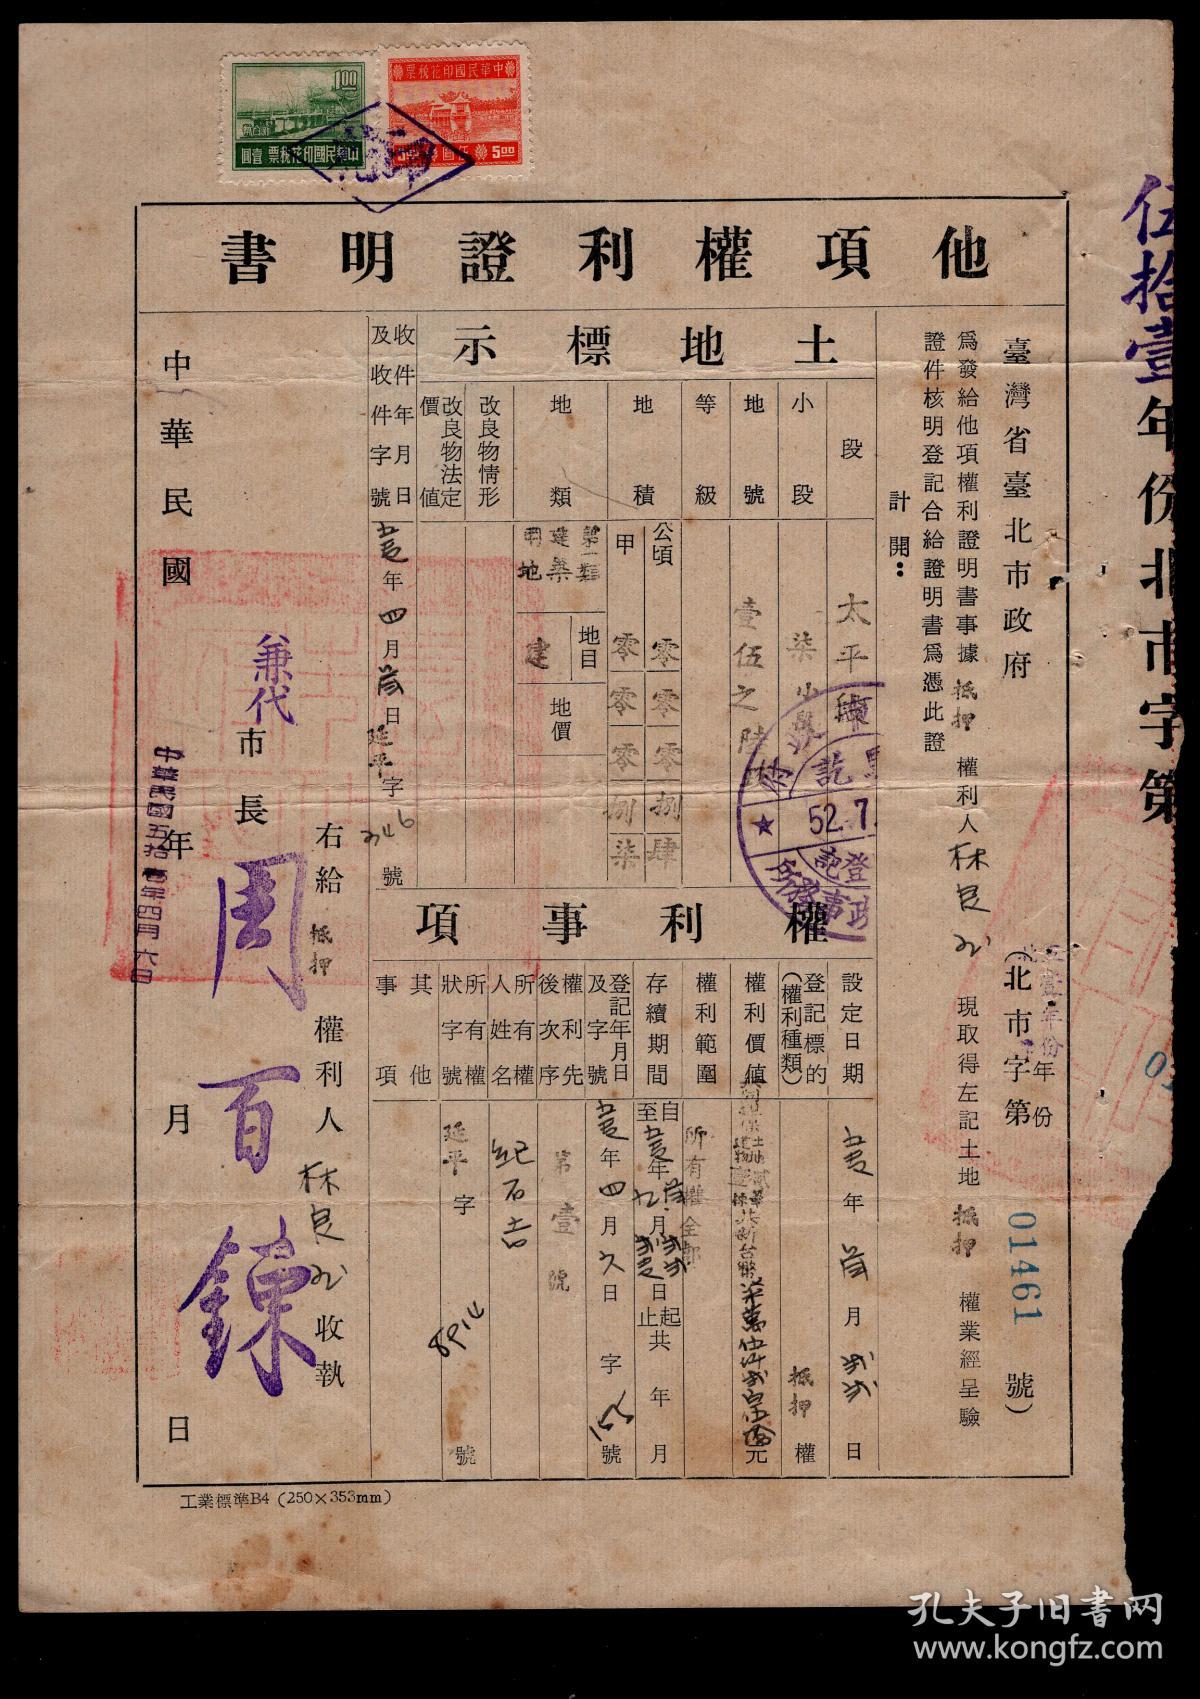 1.00
中華民國印花稅票 壹圓
中華民國印花稅票
5.00
伍圓
伍拾壹年份北市字第
他項權利證明書
臺灣省臺北市政府
(北市字第 01461 號)
年份
為發給他項權利證明書事據 抵押 權利人林良 現取得左記土地 抵押 權業經呈驗
證件核明登記合給證明書為憑此證
計開：
土地標示
段
太平
小段
柒小段
地號
壹伍之陸
等級
地積
公頃
零零零捌肆
甲
零零零捌柒
地類
第一類
建築
用地
地目
建
地價
改良物情形
改良物法定價值
收件年月日及收件字號
年四月 日延平字 346 號
52.7.
登記
權利事項
設定日期
年 月 日
登記標的(權利種類)
抵押權
權利價值
元
權利範圍
所有權全部
存續期間
自 年 月 日起
至 年 月 日止共 年 月
登記年月日及字號
年四月六日 字 號
權利先後次序
第壹號
所有權人姓名
紀石吉
所有權狀字號
延平字 號
其他事項
右給 抵押 權利人 林良 收執
兼代
市長 周百鍊
中華民國 年 月 日
中華民國五拾壹年四月六日
工業標準B4 (250×353mm)
孔夫子旧書网
www.kongfz.com